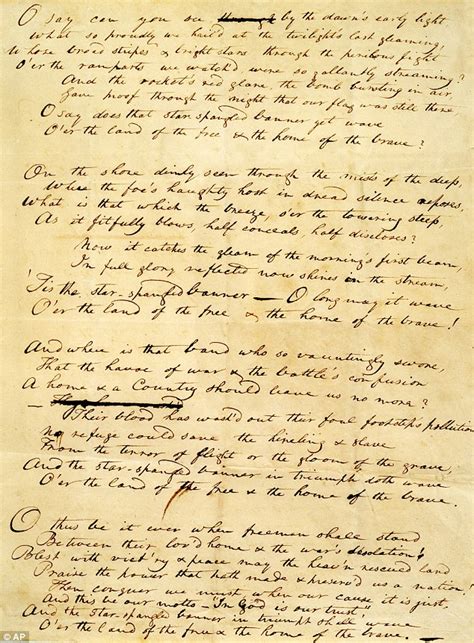 O say can you see ~~through~~ by the dawn's early light
What so proudly we hail'd at the twilight's last gleaming,
Whose broad stripes & bright stars through the perilous fight
O'er the ramparts we watch'd were so gallantly streaming?
And the rocket's red glare, the bomb bursting in air,
Gave proof through the night that our flag was still there,
O say does that star-spangled banner yet wave
O'er the land of the free & the home of the brave?
On the shore dimly seen through the mists of the deep,
Where the foe's haughty host in dread silence reposes,
What is that which the breeze, o'er the towering steep,
As it fitfully blows, half conceals, half discloses?
Now it catches the gleam of the morning's first beam,
In full glory reflected now shines in the stream,
'Tis the star-spangled banner — O long may it wave
O'er the land of the free & the home of the brave!
And where is that band who so vauntingly swore,
That the havoc of war & the battle's confusion
A home & a Country should leave us no more?
Their blood has wash'd out their foul footstep's pollution
No refuge could save the hireling & slave
From the terror of flight or the gloom of the grave,
And the star-spangled banner in triumph doth wave
O'er the land of the free & the home of the brave.
O thus be it ever when freemen shall stand
Between their lov'd home & the war's desolation!
Blest with vict'ry & peace may the heav'n rescued land
Praise the power that hath made & preserv'd us a nation!
Then conquer we must, when our cause it is just,
And this be our motto — "In God is our trust,"
And the star-spangled banner in triumph shall wave
O'er the land of the free & the home of the brave.
© AP